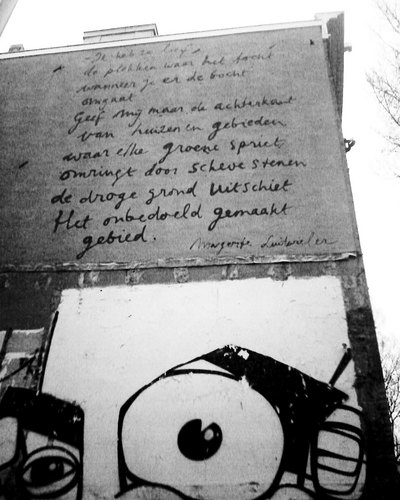 Je heb ze
de plekken waar het tocht
wanneer je er de bocht
omgaat
Geef mij maar de achterkant
van huizen en gebieden
waar elke groene spriet
omringt door scheve stenen
de droge grond uitschiet
Het onbedoeld gemaakt
gebied.
Margerite Luitwieler